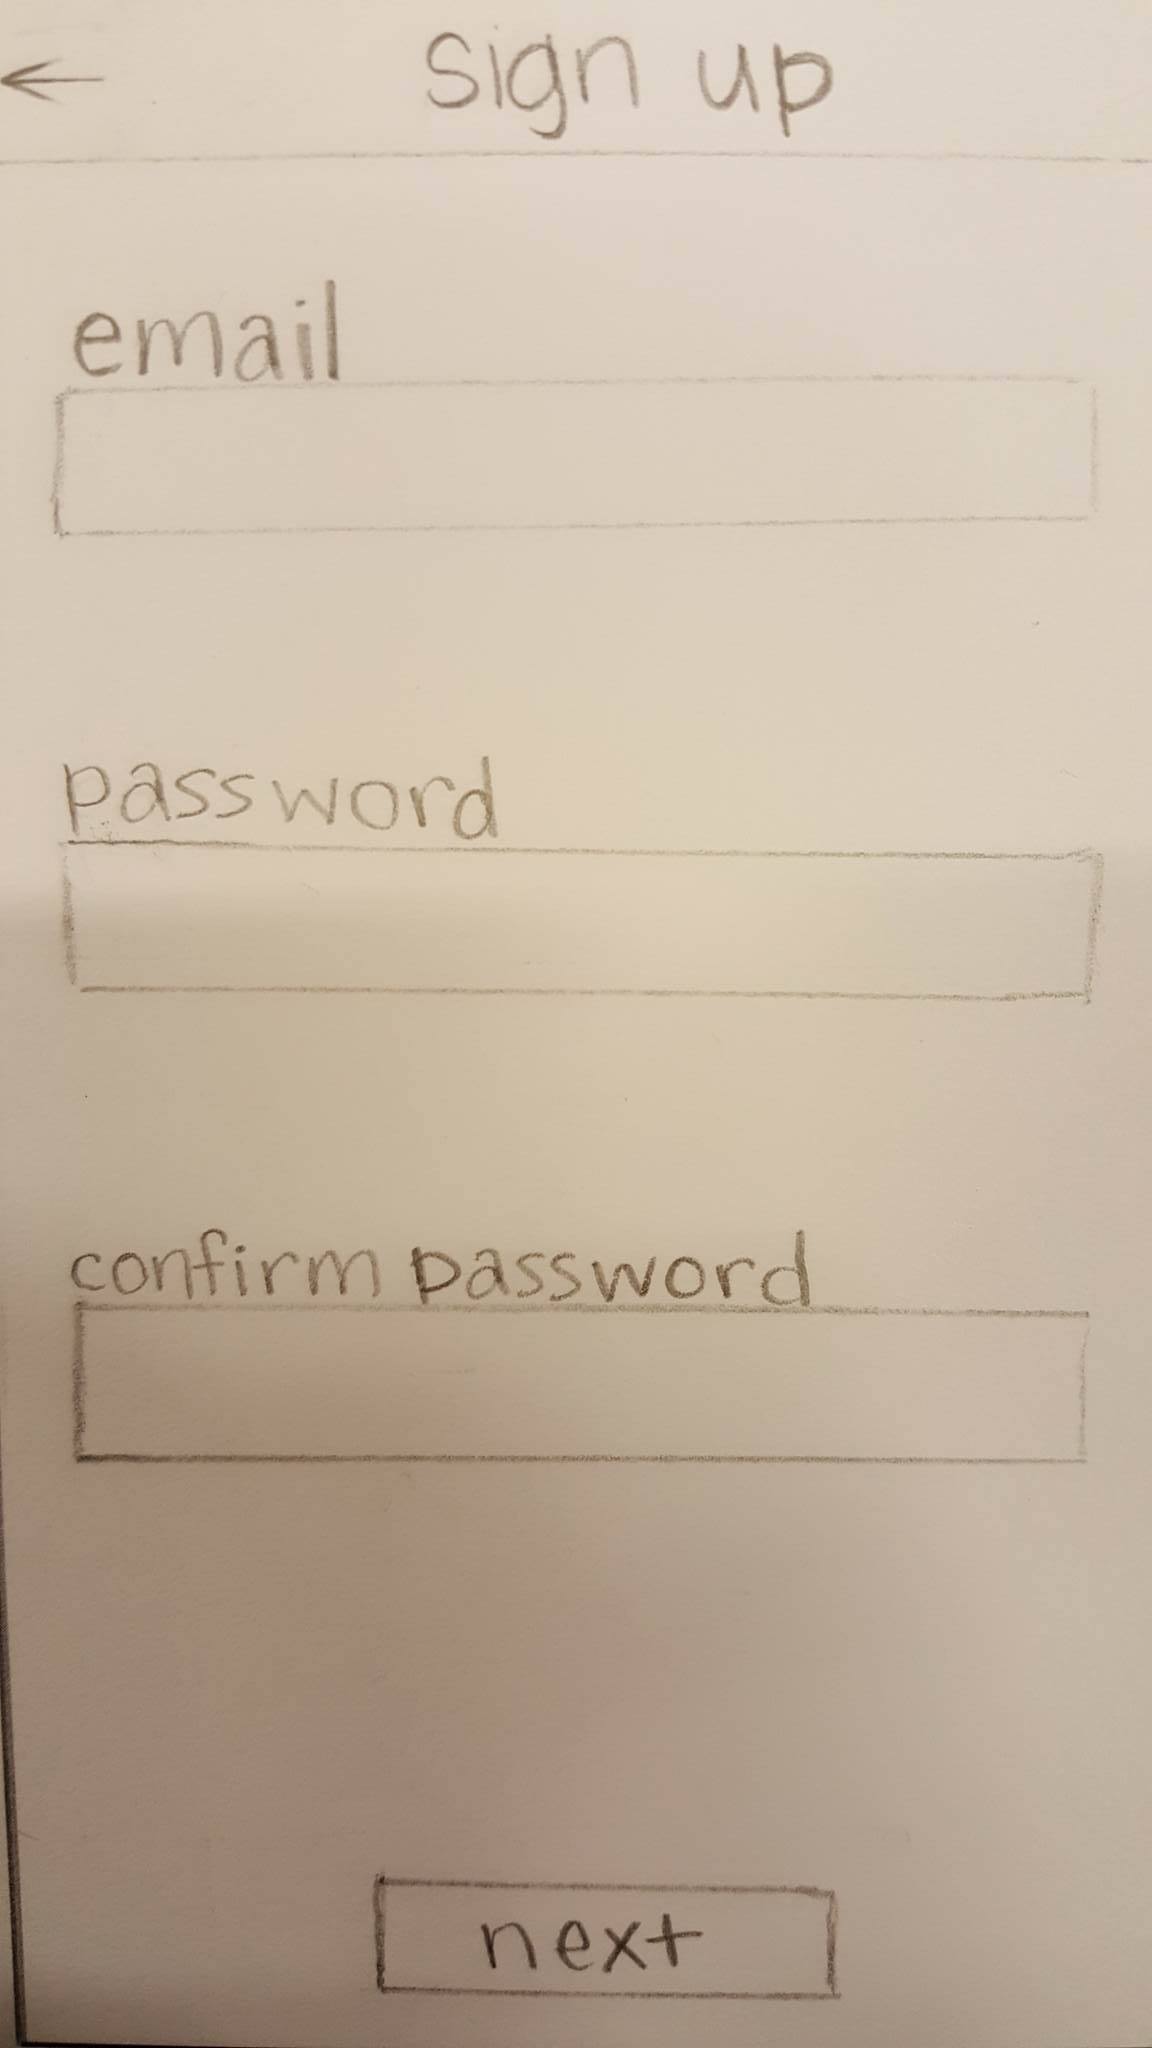 sign up
email
password
confirm password
next